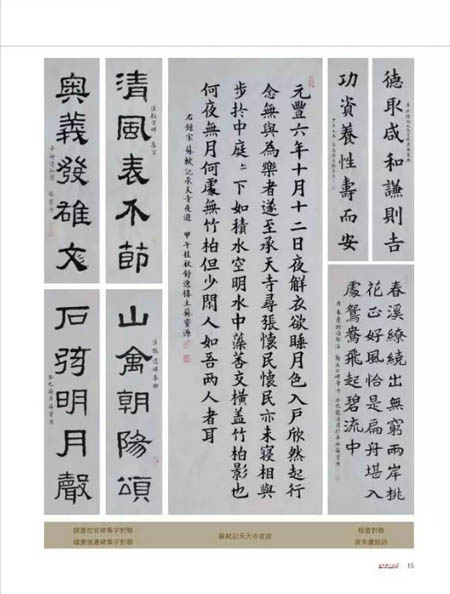 德取咸和謙則吉
功資養性壽而安
春溪繚繞出無窮兩岸桃
花正好風恰是扁舟堪入
處鴛鴦飛起碧流中
元豐六年十月十二日夜解衣欲睡月色入戶欣然起行
念無與為樂者遂至承天寺尋張懷民懷民亦未寢相與
步於中庭=下如積水空明水中藻荇交橫蓋竹柏影也
何夜無月何處無竹柏但少閑人如吾兩人者耳
右錄宋蘇軾記承天寺夜遊 甲午桂秋舒逸樓主蘇寶源
清風表不節
奧義發雄文
山禽朝陽頌
石琦明月聲
隸書校官碑集字對聯
隸書張遷碑集字對聯
蘇軾記承天寺夜遊
楷書對聯
唐朱慶餘詩
15